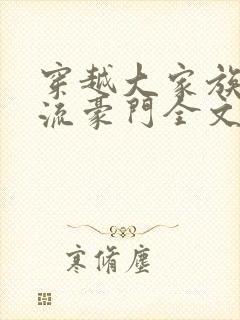 穿越大家族
流豪門全文
寒脩塵